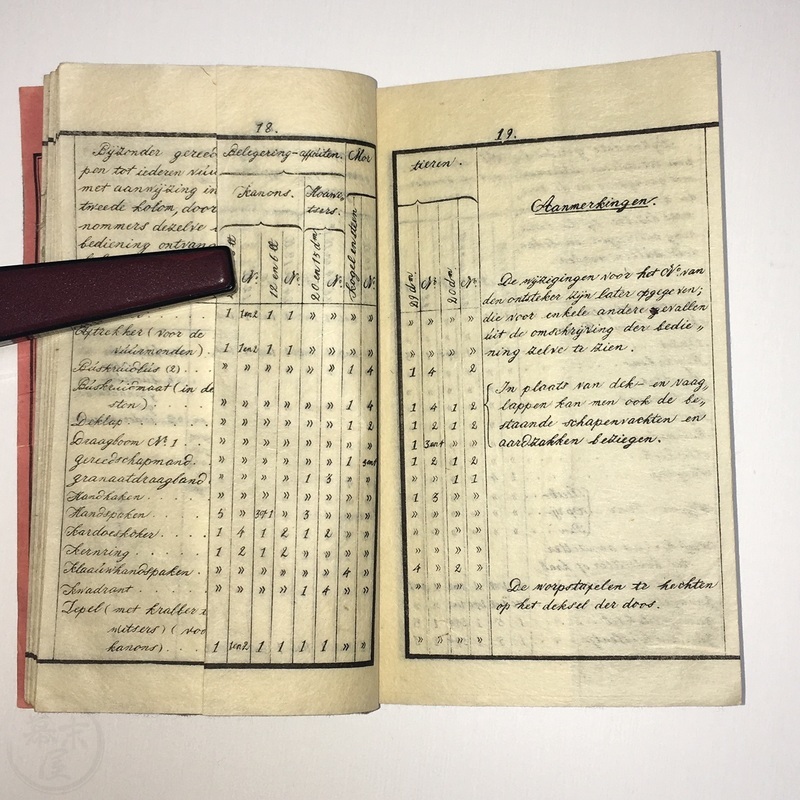 18.
Bijzonder gereed
pen tot iederen vuu
met aanwijzing in
tweede kolom, door
nommers dezelve
bediening ontvang
Belegering-affuiten. Mor
Kanons. Houwit-
tsers.
12 en 6 ℔ No. 20 en 15 dm Kogel en steen No.
1 1en2 1 1 » » » »
Aftrekker (voor de
vuurmonden). 1 1en2 1 1 » » » »
Buskruidbus (2) . . . » » » » » » 1 4
Buskruidmaat (in de
sten) . . . » » » » » » 1 4
Deklap » » » » » » 1 2
Draagboom No. 1 . . . » » » » » » » »
gereedschapmand. » » » » » » 1 3en4
granaatdraagband » » » » 1 3 » »
Handhaken . . . . » » » » » » » »
Handspaken . . . . 5 » 3of1 » 3 » » »
Kardoeskoker . . 1 4 1 2 1 2 » »
Kernring . . . . . 1 2 1 2 » » » »
Klaauwhandspaken . » » » » » » 4 »
Kwadrant . . . . » » » » 1 4 » »
Lepel (met krabber
witsers) (voo
kanons) . . . 1 1en2 1 1 1 1 » »
19.
tieren.
29 dm. No. 20 dm No.
» » » »
» » » »
1 4 2
1 4 1 2
1 2 1 2
1 3en4 » »
1 2 1 2
» » 1 1
1 3 » »
» » » »
» » » »
4 » 2 »
» » » »
» » » »
Aanmerkingen.
De wijzigingen voor het No. van
den ontsteker zijn later opgegeven;
die voor enkele andere gevallen
uit de omschrijving der bedie„
ning zelve te zien.
In plaats van dek- en vaag„
lappen kan men ook de be„
staande schapenvachten en
aardzakken beziegen.
De worpstapelen te hechten
op het deksel der doos.